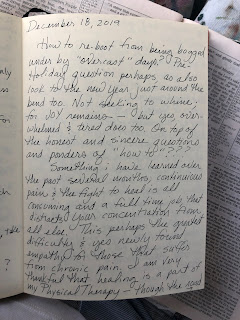 December 18, 2019
How to re-boot from being bogged
under by "overcast" days? Pre
Holiday question perhaps as also
look to the new year just around the
bend too. Not seeking to whine,
for JOY remains — but yes, over-
whelmed & tired does too. On top of
the honest and sincere questions
and ponders of "how to"???
Something i have learned over
the past several months, continuous
pain & the fight to heal is all
consuming and a full time job that
distracts your concentration from
all else. This perhaps the greatest
difficulty & yes newly found
empathy for those that suffer
from chronic pain. I am very
thankful that healing is a part of
my Physical Therapy — though the